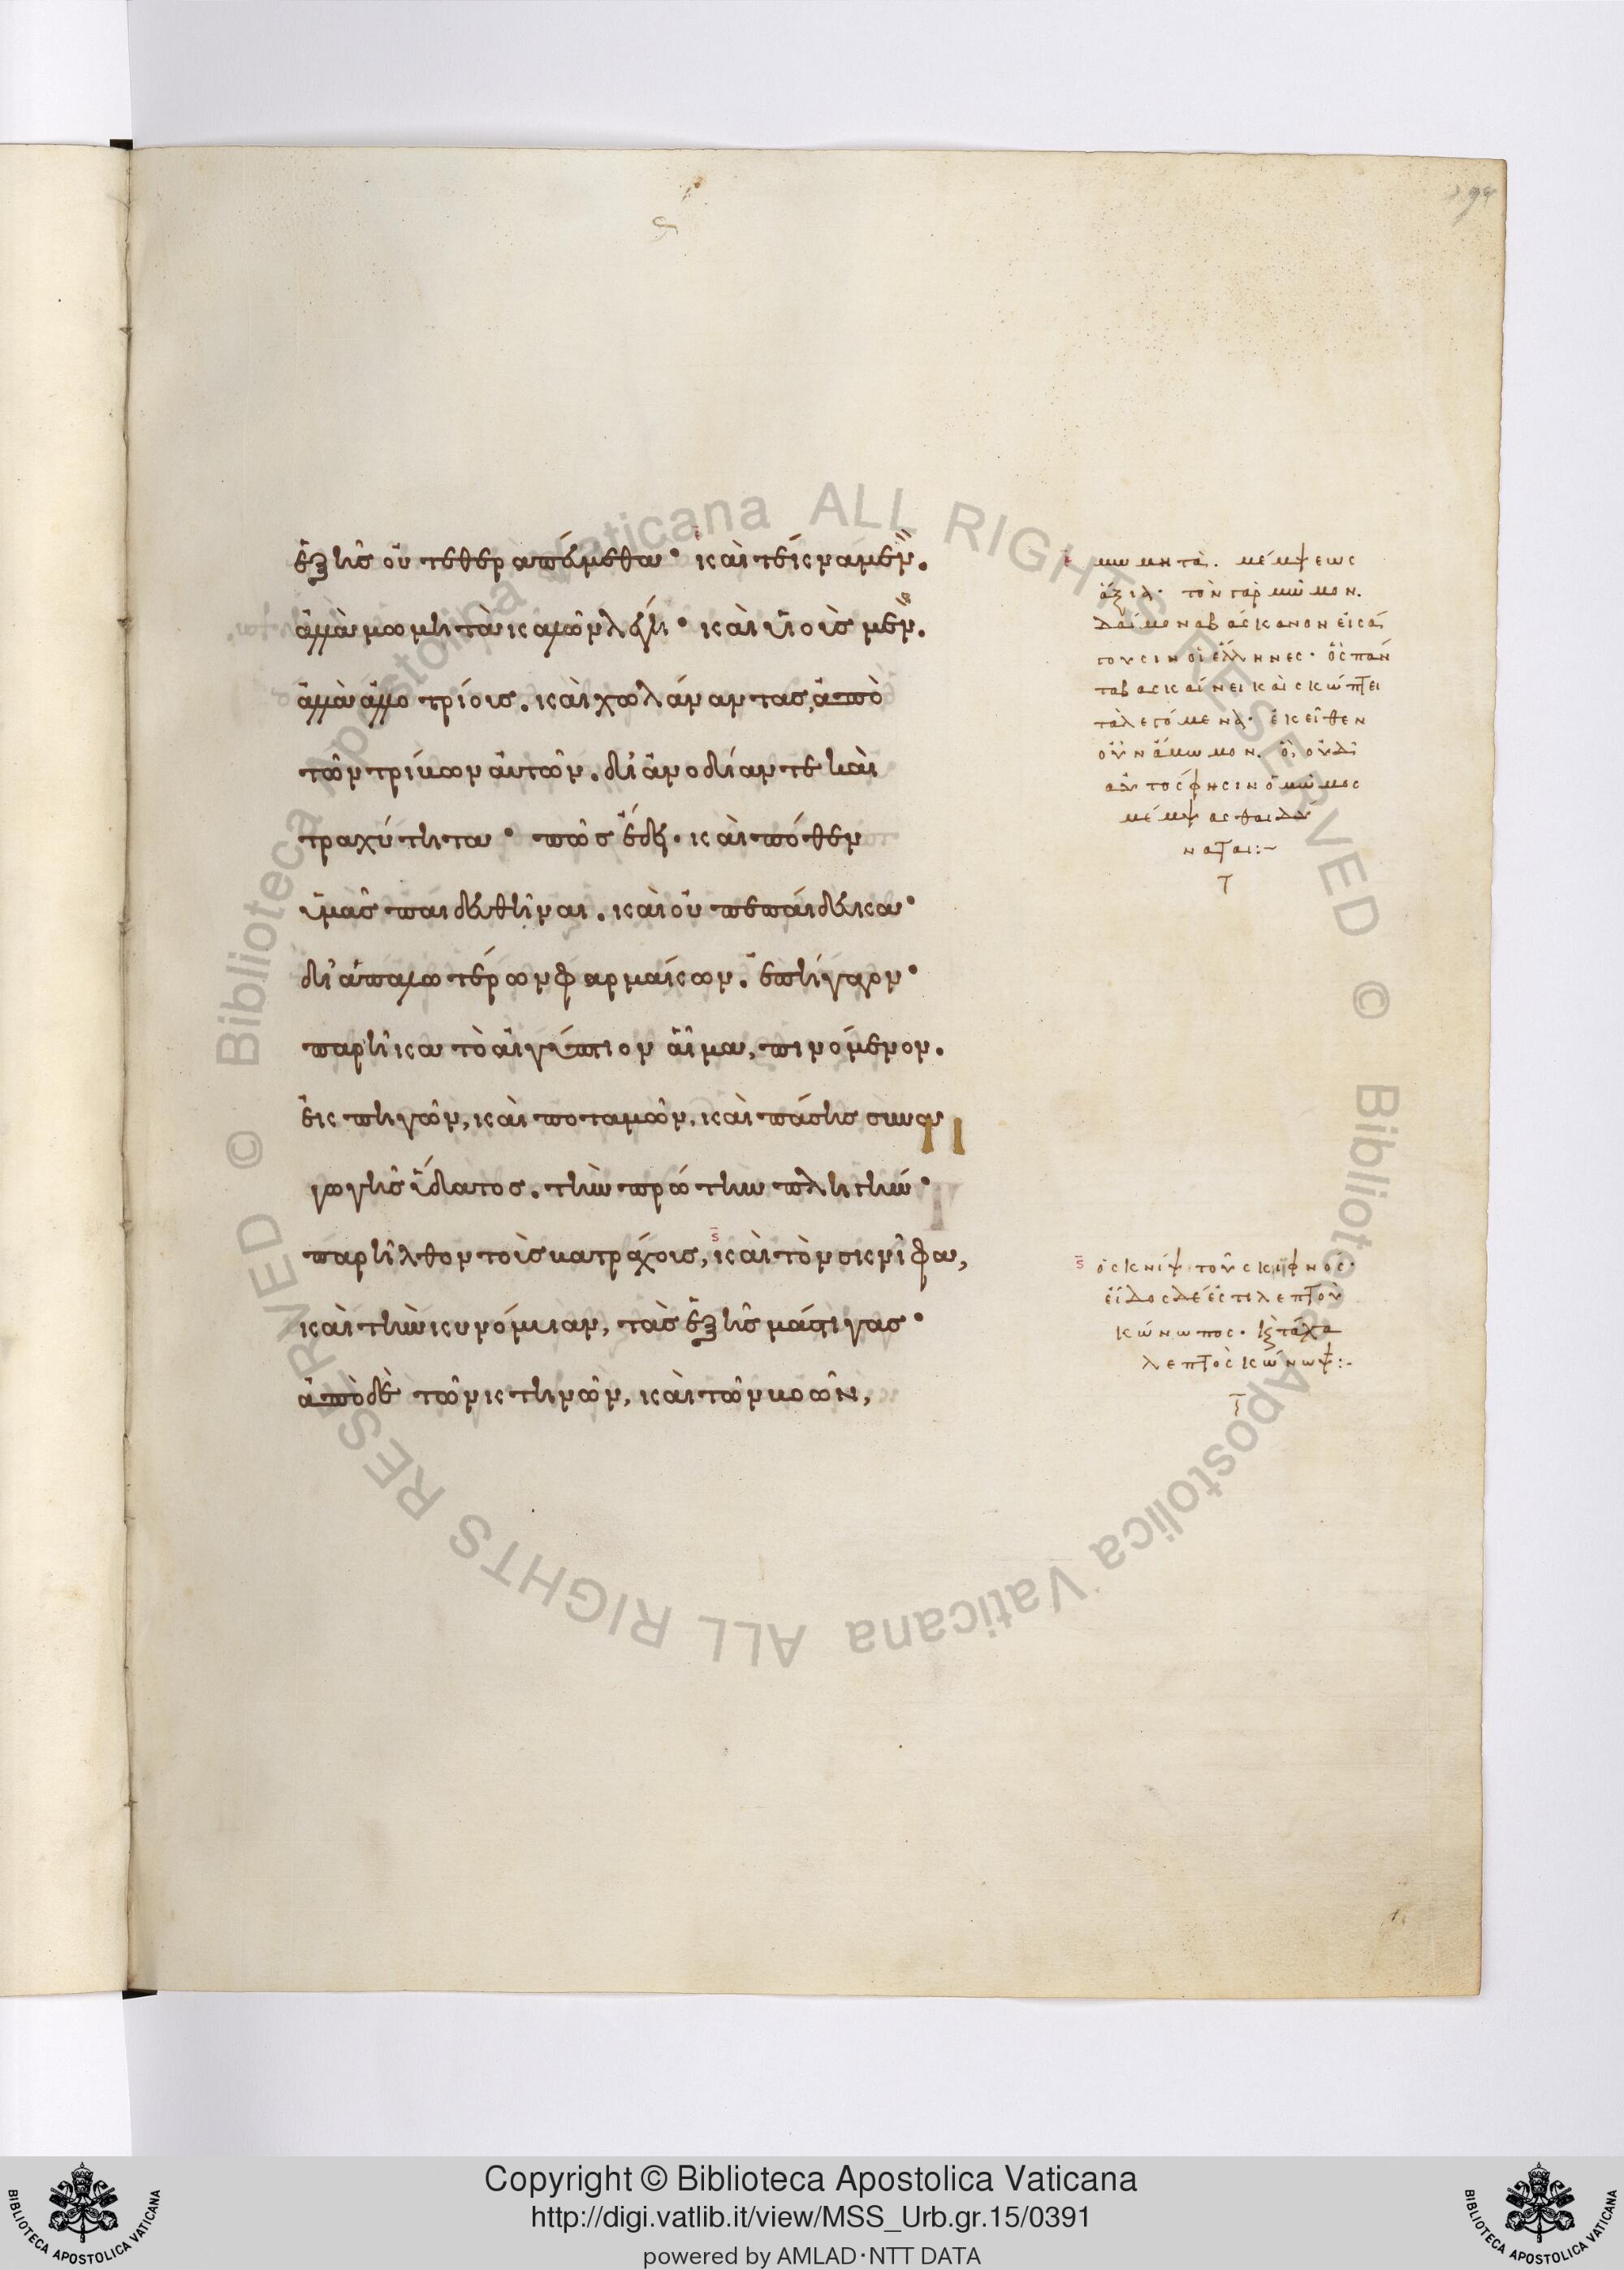 ἐξ ἧς οὔτε θεραπευόμεθα· καὶ τέκνα μέν.
ἀλλὰ μωμητὰ καλῶν λέγη· καὶ υἱοῖς μέν.
ἀλλὰ ἀλλοτρίοις. καὶ χωλάναντας, ἀπὸ
τῶν τρίβων αὐτῶν. δι' ἀνοδίαν τε καὶ
τραχύτητα· πῶς ἔδει. καὶ πόθεν
ὑμᾶς παιδευθῆναι. καὶ οὐ πεπαίδευκα·
δι' ἁπαλωτέρων φαρμάκων. ἐπήγαγον·
παρῆκα τὸ αἰγύπτιον αἷμα, πινόμενον.
ἐκ πηγῶν, καὶ ποταμῶν, καὶ πάσης συνα
γωγῆς ὕδατος. τὴν πρώτην πληγήν·
παρῆλθον τοῖς βατράχοις, καὶ τὸν σκνῖφα,
καὶ τὴν κυνόμυιαν, τὰς ἑξῆς μάστιγας·
ἀπὸ δὲ τῶν κτηνῶν, καὶ τῶν βοῶν,
μωμητὰ. μέμψεως
ἄξια· τὸν γὰρ μῶμον.
δαίμονα βάσκανον εἰσά
γουσιν οἱ ἕλληνες· ὃς πάν
τα βασκαίνει καὶ σκώπτει
τὰ λεγόμενα· ἐκεῖθεν
οὖν ἄμωμον. ὃ, οὐδ'
αὐτός φησιν ὁ μῶμος
μέμψασθαι δύ
ναται:~
ς ὁ σκνίψ τοῦ σκιφνός·
εἶδος δέ ἐστι λεπτοῦ
κώνωπος· ἢ τάχα
λεπτὸς κώνωψ:-
Copyright © Biblioteca Apostolica Vaticana
http://digi.vatlib.it/view/MSS_Urb.gr.15/0391
powered by AMLAD·NTT DATA
BIBLIOTECA APOSTOLICA VATICANA
BIBLIOTECA APOSTOLICA VATICANA
© Biblioteca Apostolica Vaticana ALL RIGHTS RESERVED © Biblioteca Apostolica Vaticana ALL RIGHTS RESERVED